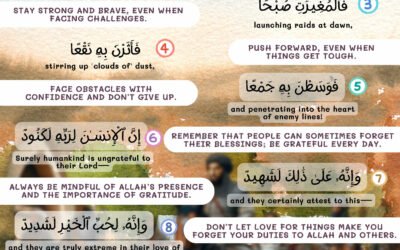 STAY STRONG AND BRAVE, EVEN WHEN
FACING CHALLENGES.
فَالْمُغِيرَٰتِ صُبْحًا
3
launching raids at dawn,
فَأَثَرْنَ بِهِۦ نَقْعًا
4
stirring up ˹clouds of˺ dust,
PUSH FORWARD, EVEN WHEN
THINGS GET TOUGH.
FACE OBSTACLES WITH
CONFIDENCE AND DON'T GIVE UP.
فَوَسَطْنَ بِهِۦ جَمْعًا
5
and penetrating into the heart
of enemy lines!
إِنَّ ٱلْإِنسَـٰنَ لِرَبِّهِۦ لَكَنُودٌ
6
Surely humankind is ungrateful to
their Lord—
REMEMBER THAT PEOPLE CAN SOMETIMES FORGET
THEIR BLESSINGS; BE GRATEFUL EVERY DAY.
ALWAYS BE MINDFUL OF ALLAH'S PRESENCE
AND THE IMPORTANCE OF GRATITUDE.
وَإِنَّهُۥ عَلَىٰ ذَٰلِكَ لَشَهِيدٌ
7
and they certainly attest to this—
وَإِنَّهُۥ لِحُبِّ ٱلْخَيْرِ لَشَدِيدٌ
8
and they are truly extreme in their love of
DON'T LET LOVE FOR THINGS MAKE YOU
FORGET YOUR DUTIES TO ALLAH AND OTHERS.